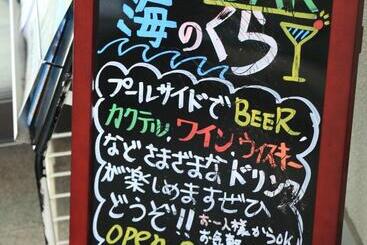 BAR
海のくら
プールサイドで BEER,
カクテル,ワイン,ウイスキー
などさまざまなドリンク
が楽しめますぜひ
どうぞ!! お一人様からok!
open